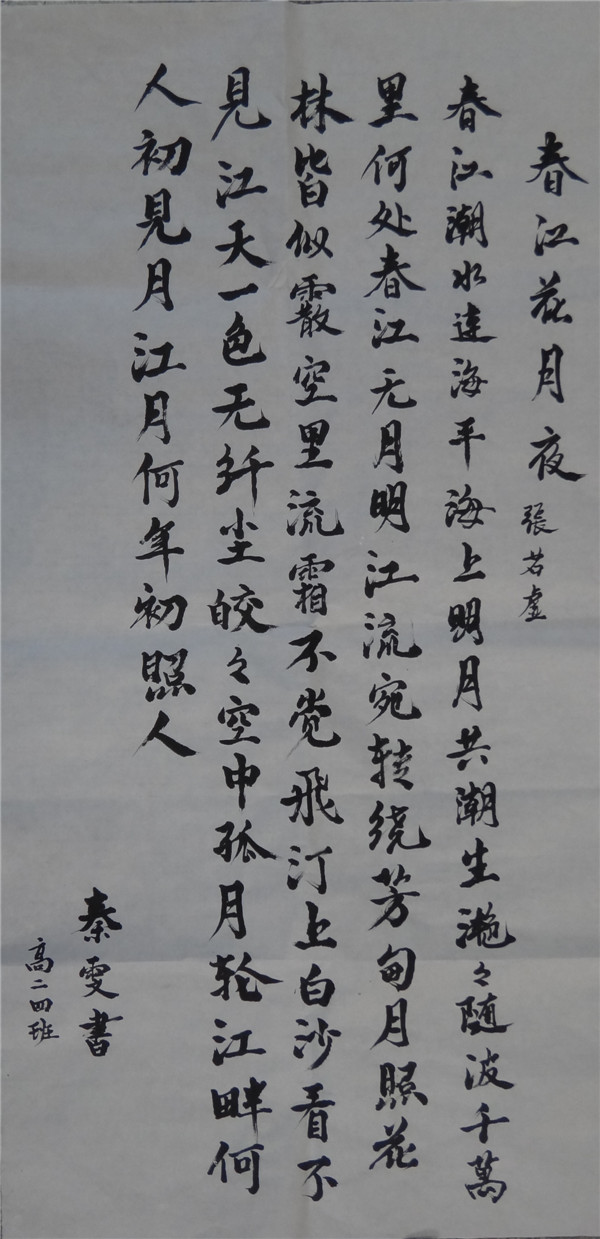 春江花月夜
張若虚
春江潮水连海平海上明月共潮生滟々随波千萬
里何处春江无月明江流宛转绕芳甸月照花
林皆似霰空里流霜不觉飛汀上白沙看不
見江天一色无纤尘皎々空中孤月轮江畔何
人初見月江月何年初照人
秦雯書
高二四班